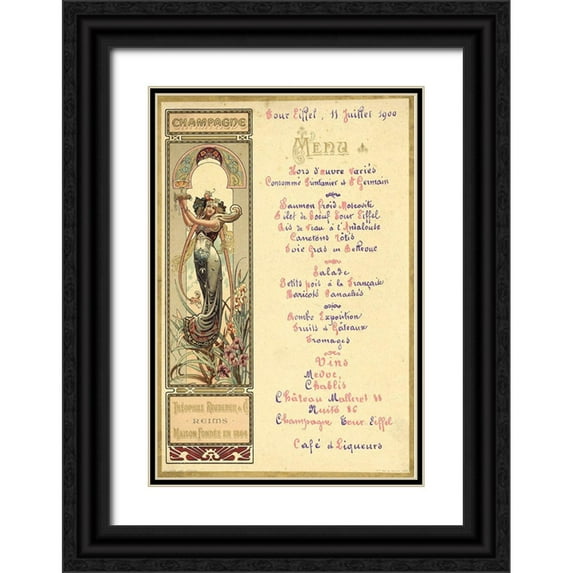 CHAMPAGNE
Tour Eiffel, 11 Juillet 1900
MENU
Hors d'œuvre variés
Consommé Printanier et St Germain
Saumon froid Moscovite
Filet de Bœuf Tour Eiffel
Ris de Veau à l'Andalouse
Canetons Rôtis
Foie Gras en Bellevue
Salade
Petits pois à la Française
Haricots Panachés
Bombe Exposition
Fruits & Gâteaux
Fromages
Vins
Médoc
Chablis
Château Malleret 88
Nuits 86
Champagne Tour Eiffel
Café & Liqueurs
THÉOPHILE ROEDERER & Co
REIMS
MAISON FONDÉE EN 1864